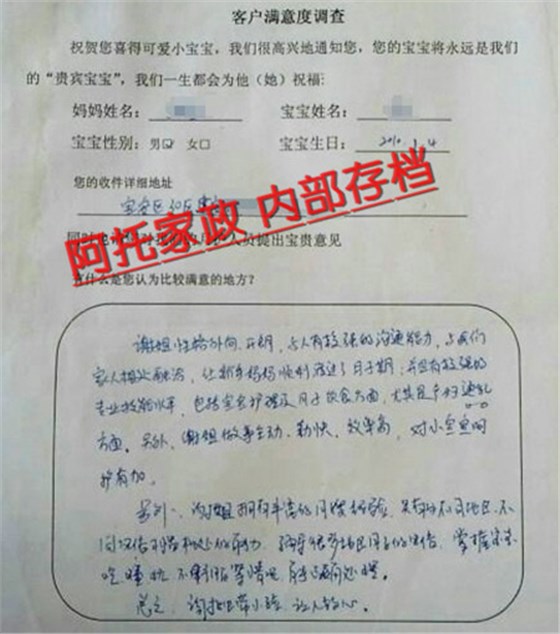 客户满意度调查
祝贺您喜得可爱小宝宝，我们很高兴地通知您，您的宝宝将永远是我们
的“贵宾宝宝”，我们一生都会为他（她）祝福：
妈妈姓名： 宝宝姓名：
宝宝性别： 男☑ 女□ 宝宝生日： 2010.1.4
您的收件详细地址
宝安区
阿托家政 内部存档
人员提出宝贵意见
有什么是您认为比较满意的地方？
谢姐性格外向、开朗，与人有较强的沟通能力，与我们
家人相处融洽，让新手妈妈顺利渡过了月子期，并且有较强的
专业技能水平，包括宝宝护理及月子饮食方面，尤其是产妇通乳
方面。另外，谢姐做事主动、勤快，效率高，对小宝宝呵
护有加。
另外，谢姐拥有丰富的月嫂经验，具有和不同地区、不
同
吃睡拉
总之，谢姐带小孩，让人放心。